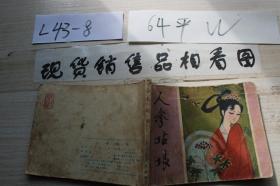 L43-8
64平 W
现货销售品相看图
人参姑娘